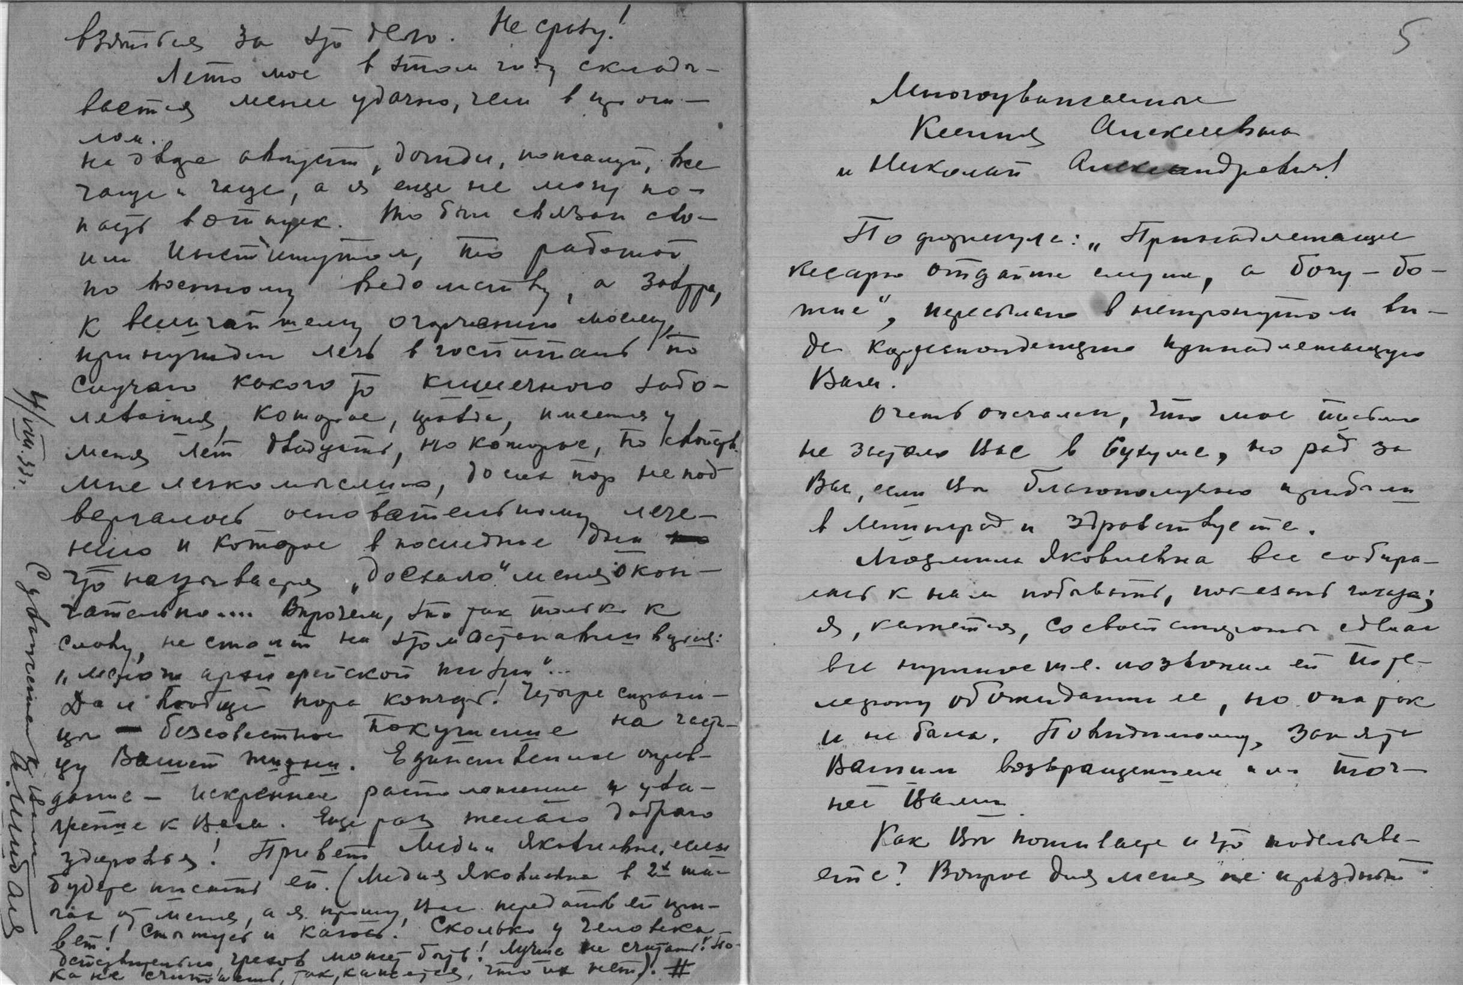 взяться за это дело. Не сразу!
Лето мое в этом году склады-
вается менее удачно, чем в прош-
лом.
На дворе август, дожди, пожалуй, все
чаще и чаще, а я еще не могу по-
пасть в отпуск. То был связан сво-
им Институтом, то работой
по военному ведомству, а завтра,
к величайшему огорчению моему,
принужден лечь в госпиталь по
случаю какого то кишечного забо-
левания, которое, правда, имеется у
меня лет двадцать, но которое, по свойств.
мне легкомыслию, до сих пор не под
вергалось основательному лече-
нию и которое в последние дни
что называется „доехало" меня окон-
чательно.... Впрочем, это так только к
слову, не стоит на этом останавливаться:
„мелочи архиерейской жизни"...
Да и вообще пора кончать! Четыре страни-
цы – бессовестное покушение на часть-
цу Вашей жизни. Единственное оправ-
дание – искреннее расположение и ува-
жение к Вам. Еще раз желаю доброго
здоровья! Привет Лидии Яковлевне, если
будете писать ей. (Лидия Яковлевна в 2х ша-
гах от меня, а я прошу Вас передать ей при-
вет! Стыжусь и каюсь! Сколько у человека
действительно грехов может быть! Лучше не считать! По-
ка не считаешь, так, кажется, что их нет). #
4/VIII.33г.
5
Многоуважаемые
Ксения Алексеевна
и Николай Александрович!
По формуле: „Принадлежащее
кесарю отдайте кесарю, а богу – бо-
жие", пересылаю в нетронутом ви-
де корреспонденцию принадлежащую
Вам.
Очень опечален, что мое письмо
не застало Вас в Сухуме, но рад за
Вас, если Вы благополучно прибыли
в Ленинград и здравствуете.
Людмила Яковлевна все собира-
лась к нам побывать, показать
я, кажется, со своей стороны сделал
все нужное т.е. позвонил ей по те-
лефону об ожидании ее, но она так
и не была. Повидимому, занята
Вашим возвращением или точ-
нее Вами.
Как Вы поживаете и что поделыва-
ете? Вопрос для меня не праздный.